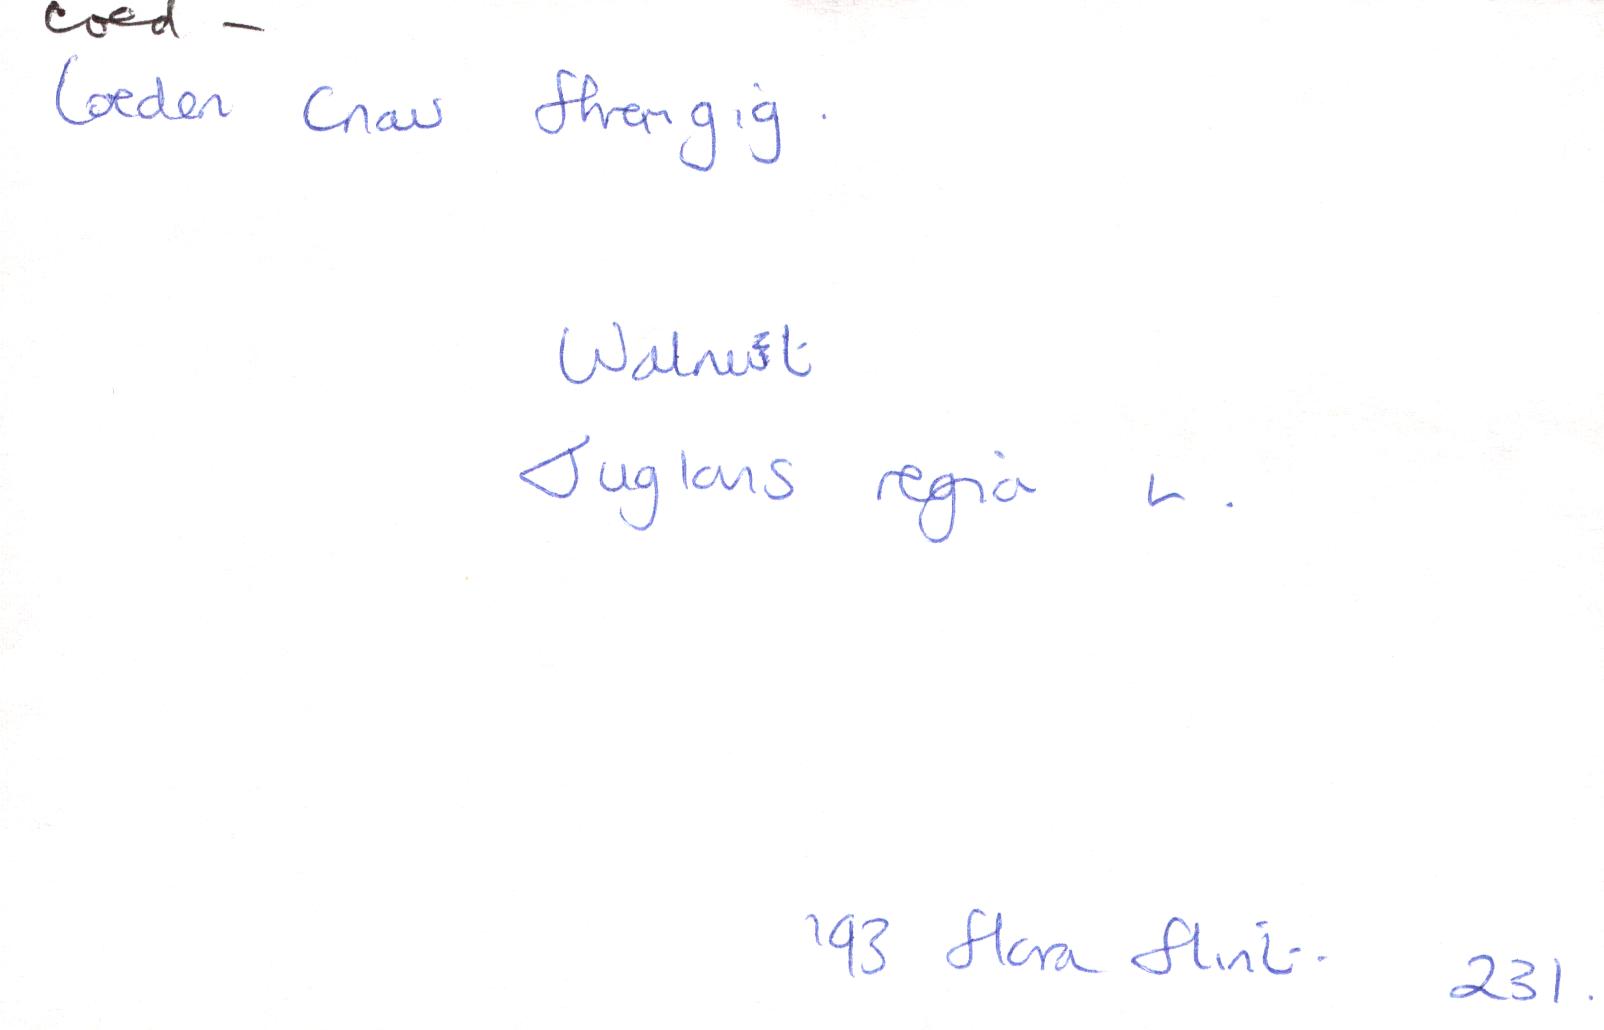 coed -
Coeden Cnau Ffrengig.
Walnut
Juglans regia L.
'93 Flora Flint.
231.